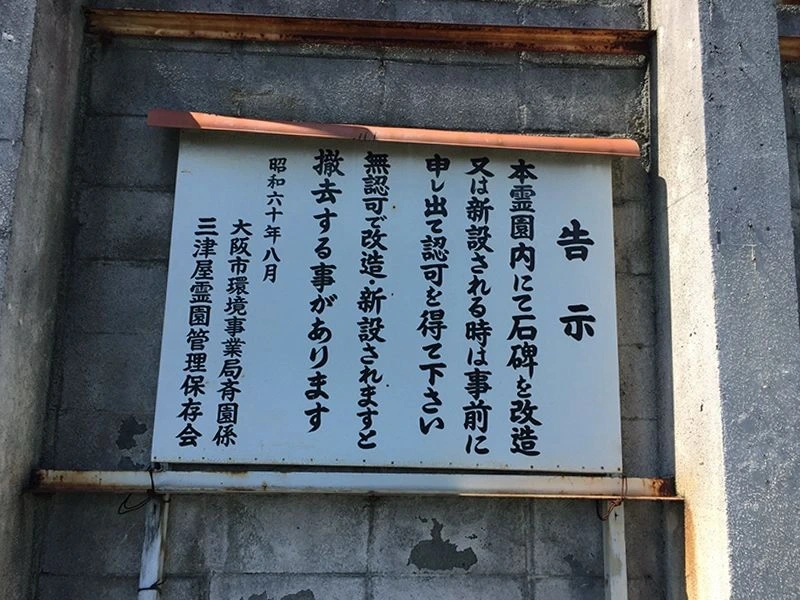 告示
本霊園内にて石碑を改造
又は新設される時は事前に
申し出て認可を得て下さい
無認可で改造・新設されますと
撤去する事があります
昭和六十年八月
大阪市環境事業局斉園係
三津屋霊園管理保存会